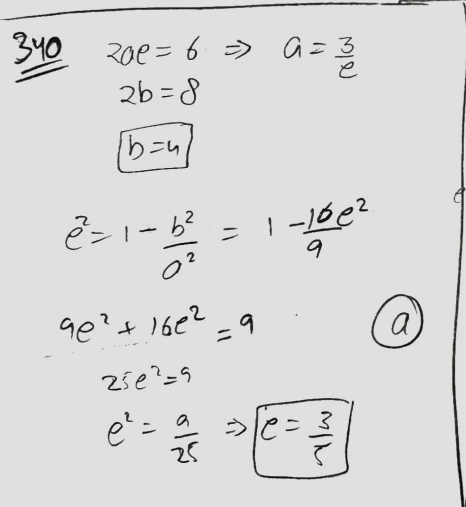 340 2ae = 6 ⇒ a = 3/e
2b = 8
b = 4
e² = 1 - b²/a² = 1 - 16e²/9
9e² + 16e² = 9
(a)
25e² = 9
e² = 9/25 ⇒ e = 3/5